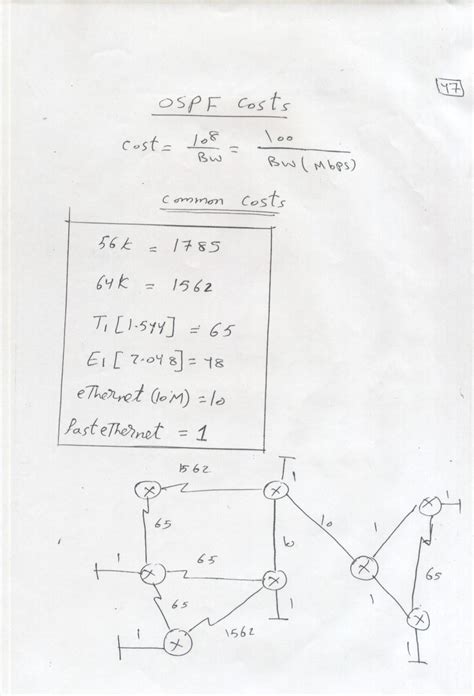 47
OSPF Costs
Cost = 10⁸/BW = 100/BW (Mbps)
Common Costs
56k = 1785
64K = 1562
T1 [1.544] = 65
E1 [2.048] = 48
eThernet (10M) = 10
Fast eThernet = 1
1562
1
65
10
1
1
1
65
65
65
1
1
1562
1
1